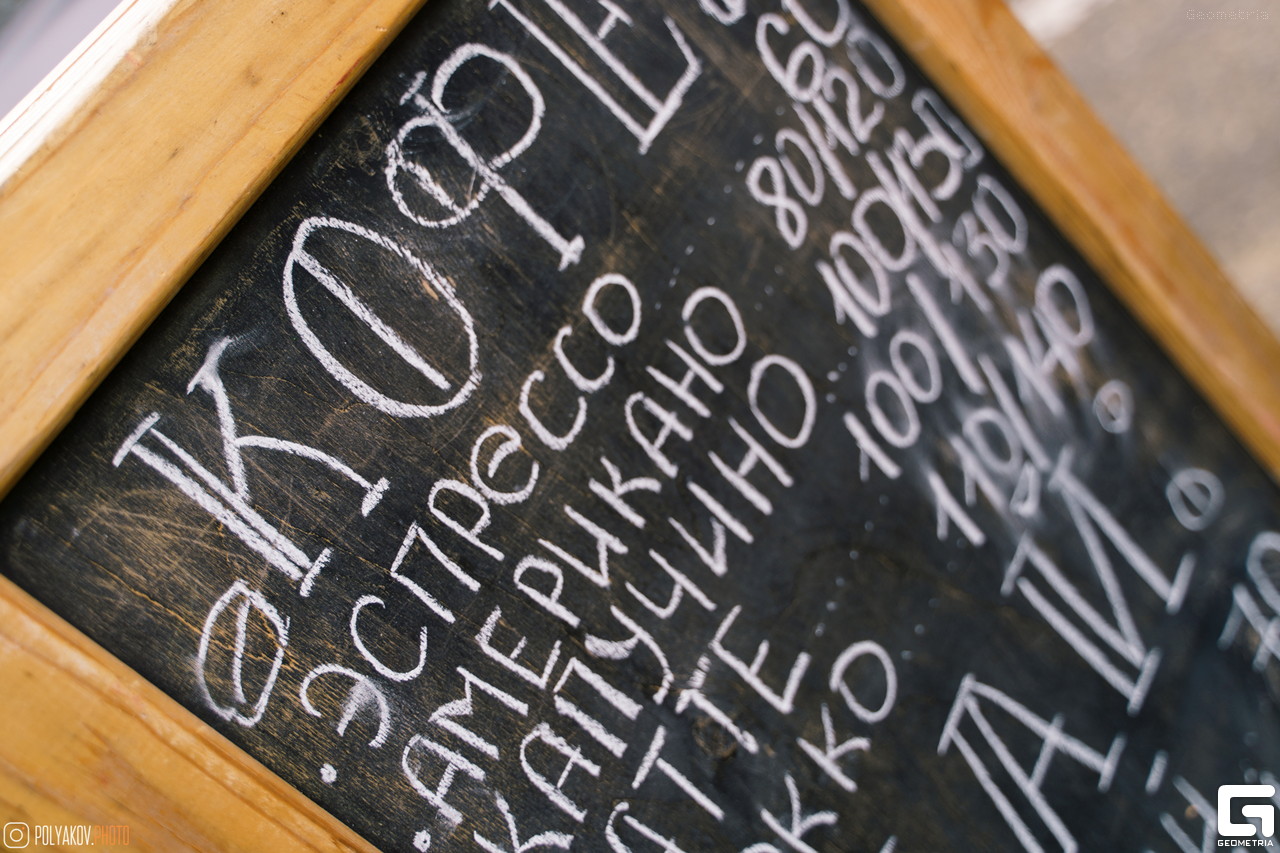 КОФЕ
ЭСПРЕССО 60
АМЕРИКАНО 80/120
КАПУЧИНО 100/150
АТТЕ 100/130
ОККО 110/140
АЙ
Geometria
POLYAKOV.PHOTO
GEOMETRIA